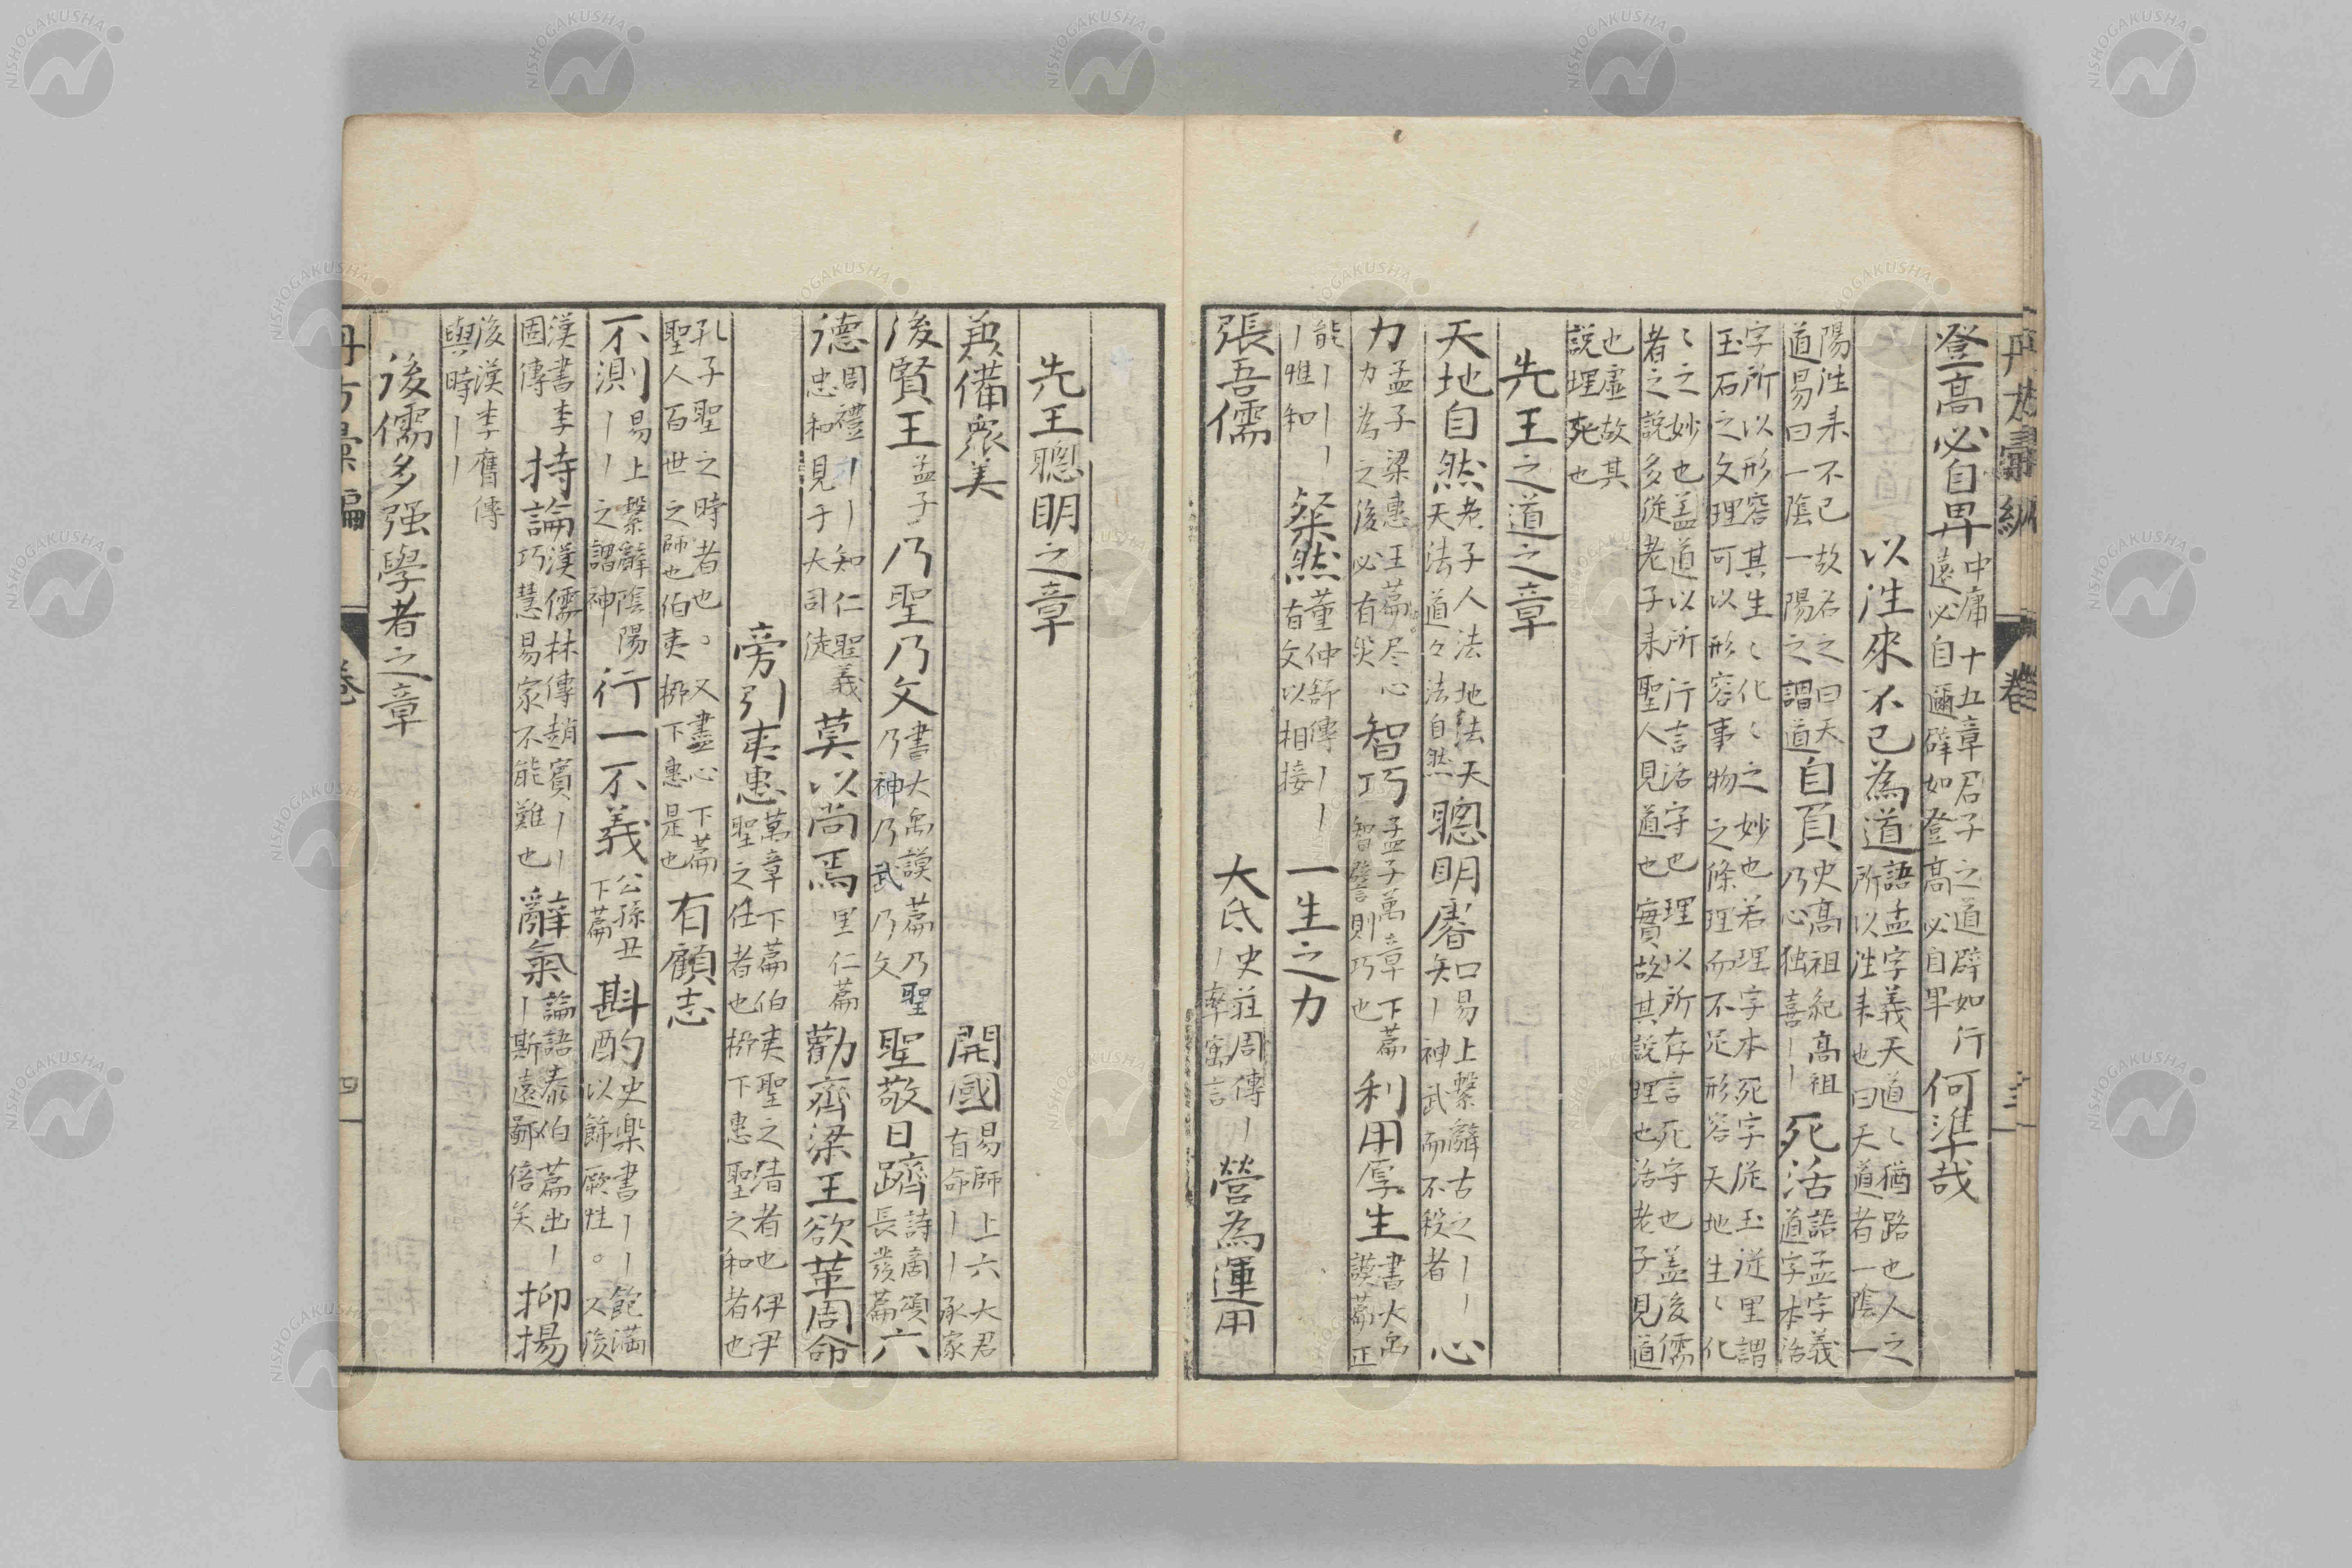 登高必自卑 中庸十五章君子之道辟如行遠必自邇辟如登高必自卑 何準哉
以往來不已為道 語孟字義天道〻猶路也人之所以往来也曰天道者一陰一
陽往来不已故名之曰天道易曰一陰一陽之謂道 自負 史高祖紀高祖乃心独喜｜｜ 死活 語孟字義道字本活
字所以形容其生〻化〻之妙也若理字本死字从玉従里謂玉石之文理可以形容事物之條理而不足形容天地生〻化
〻之妙也蓋道以所行言活字也理以所存言死字也蓋後儒者之説多従老子来聖人見道也實故其説理也活老子見道
也虚故其説理死也
先王之道之章
天地自然 老子人法地法天天法道々法自然 聰明睿知 口易上繫辭古之｜｜｜神武而不殺者 心
力 孟子梁惠王篇尽心力為之後必有災 智巧 孟子萬章下篇智譬則巧也 利用厚生 書大禹謨篇正
能｜｜｜｜惟和 粲然 董仲舒傳｜｜有文以相接 一生之力
張吾儒 大氐 史荘周傳｜｜率寓言 營為運用
先王聰明之章
兼備衆美 開國 易師上六大君有命｜｜承家
後賢王 孟子 乃聖乃文 書大禹謨篇乃聖乃神乃武乃文 聖敬日躋 詩商頌長發篇 六
德 周禮｜｜知仁聖義忠和見于大司徒 莫以尚焉 里仁篇 勸齊梁王欲革周命
旁引夷惠 萬章下篇伯夷聖之清者也伊尹聖之任者也栁下惠聖之和者也
孔子聖之時者也。又盡心下篇聖人百世之師也伯夷栁下惠是也 有顧志
不測 易上繫辭陰陽｜｜之謂神 行一不義 公孫丑下篇 斟酌 史楽書｜｜飽満以飾厥性。又後
漢書李固傳 持論 漢儒林傳趙賓｜｜巧慧易家不能難也 辭氣 論語泰伯篇出｜｜斯遠鄙倍矣 抑揚
後漢李膺傳與時｜｜
後儒多强學者之章
卷
四